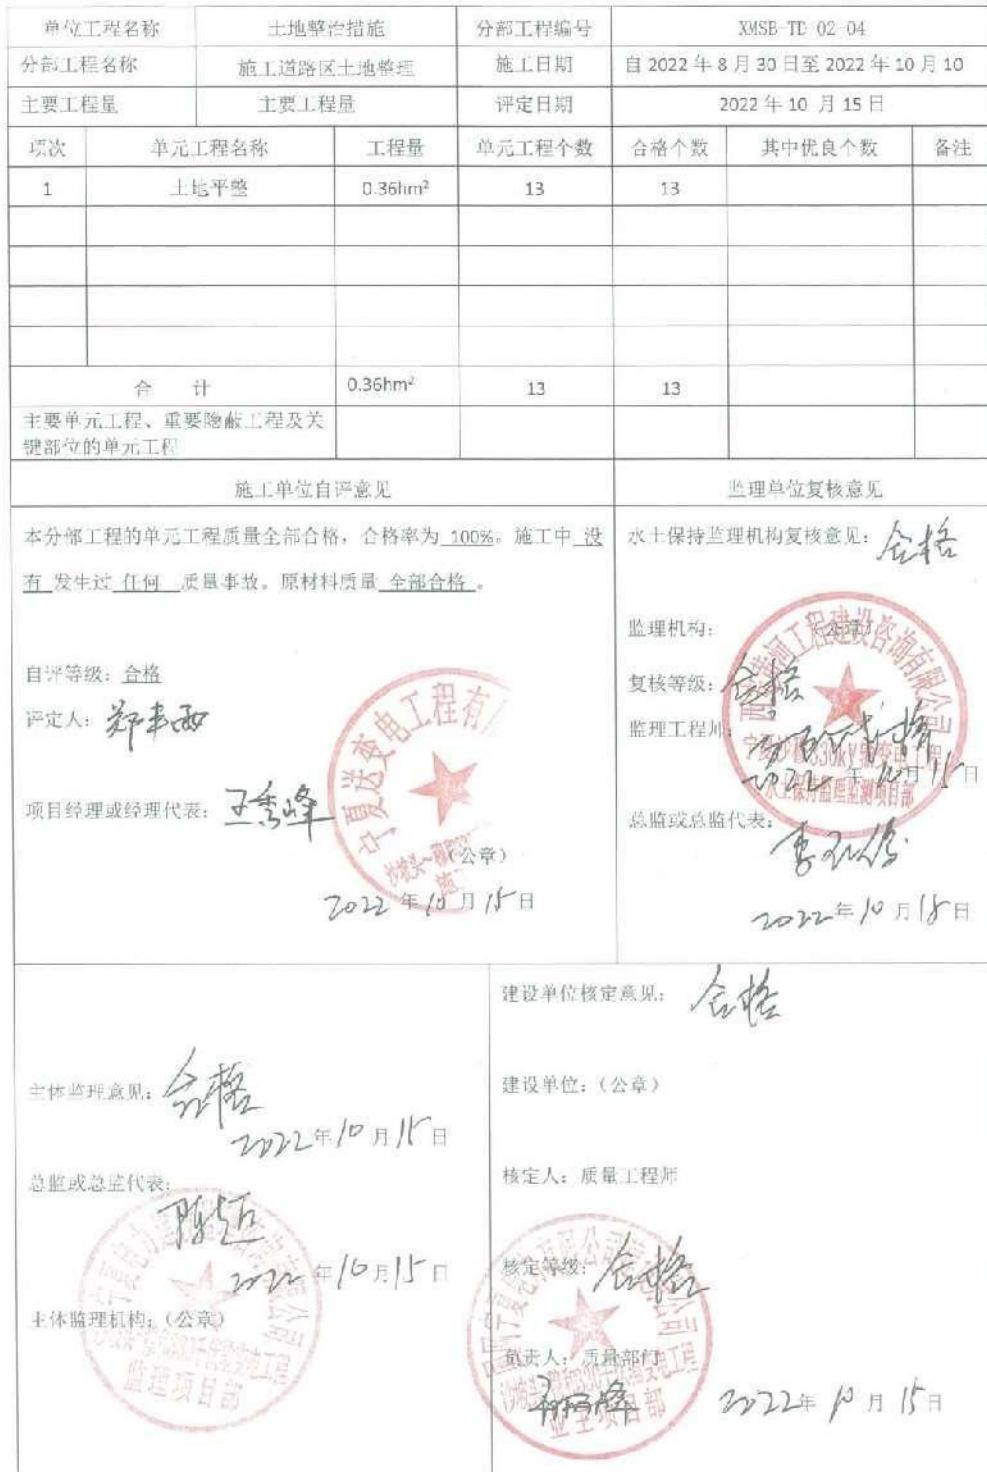 单位工程名称 土地整治措施 分部工程编号 XMSB-TD-02-04
分部工程名称 施工道路区土地整理 施工日期 自 2022 年 8 月 30 日至 2022 年 10 月 10
主要工程量 主要工程量 评定日期 2022 年 10 月 15 日
项次 单元工程名称 工程量 单元工程个数 合格个数 其中优良个数 备注
1 土地平整 0.36hm² 13 13
合 计 0.36hm² 13 13
主要单元工程、重要隐蔽工程及关
键部位的单元工程
施工单位自评意见
本分部工程的单元工程质量全部合格，合格率为 100%。施工中 没
有 发生过 任何 质量事故。原材料质量 全部合格 。
自评等级：合格
评定人：
项目经理或经理代表：王秀峰
宁夏送变电工程有
（公章）
2022 年 10 月 15 日
监理单位复核意见
水土保持监理机构复核意见：合格
监理机构： （公章）
复核等级：合格
监理工程师：
2022 年 10 月 15 日
总监或总监代表：
2022 年 10 月 15 日
黄河工程建设咨询有限公司
330kV输变电工程
水土保持监理监测项目部
主体监理意见：合格
2022 年 10 月 15 日
总监或总监代表：
2022 年 10 月 15 日
主体监理机构：（公章）
监理项目部
建设单位核定意见：合格
建设单位：（公章）
核定人：质量工程师
核定等级：合格
负责人：质量部门
2022 年 10 月 15 日
业主项目部